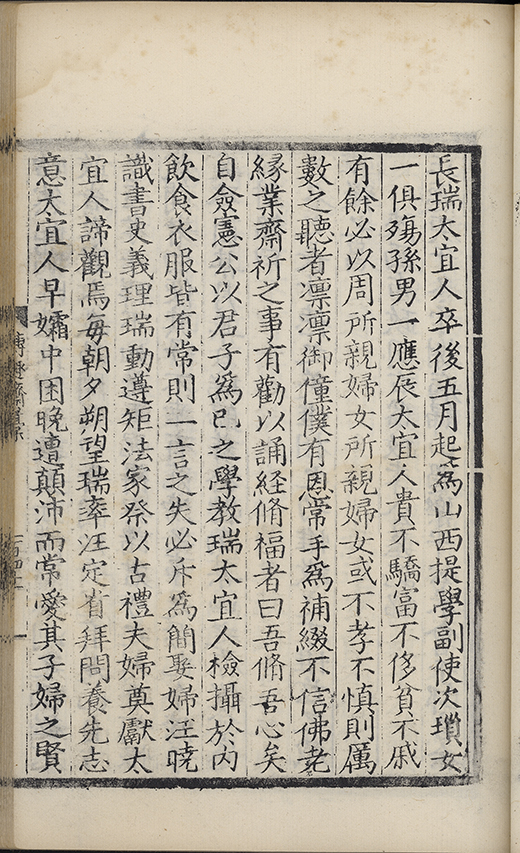 長瑞太宜人卒後五月起爲山西提學副使次瑣女
一俱殤孫男一應辰太宜人貴不驕富不侈貧不戚
有餘必以周所親婦女所親婦女或不孝不慎則厲
數之聽者凛凛御僮僕有恩常手爲補綴不信佛老
縁業齋祈之事有勸以誦経脩福者曰吾脩吾心矣
自僉憲公以君子爲已之學教瑞太宜人檢攝於内
飲食衣服皆有常則一言之失必斥爲簡娶婦汪曉
識書史義理瑞動遵矩法家祭以古禮夫婦奠獻太
宜人諦觀焉每朝夕朔望瑞率汪定省拜問養先志
意太宜人早孀中困晚遭顛沛而常愛其子婦之賢